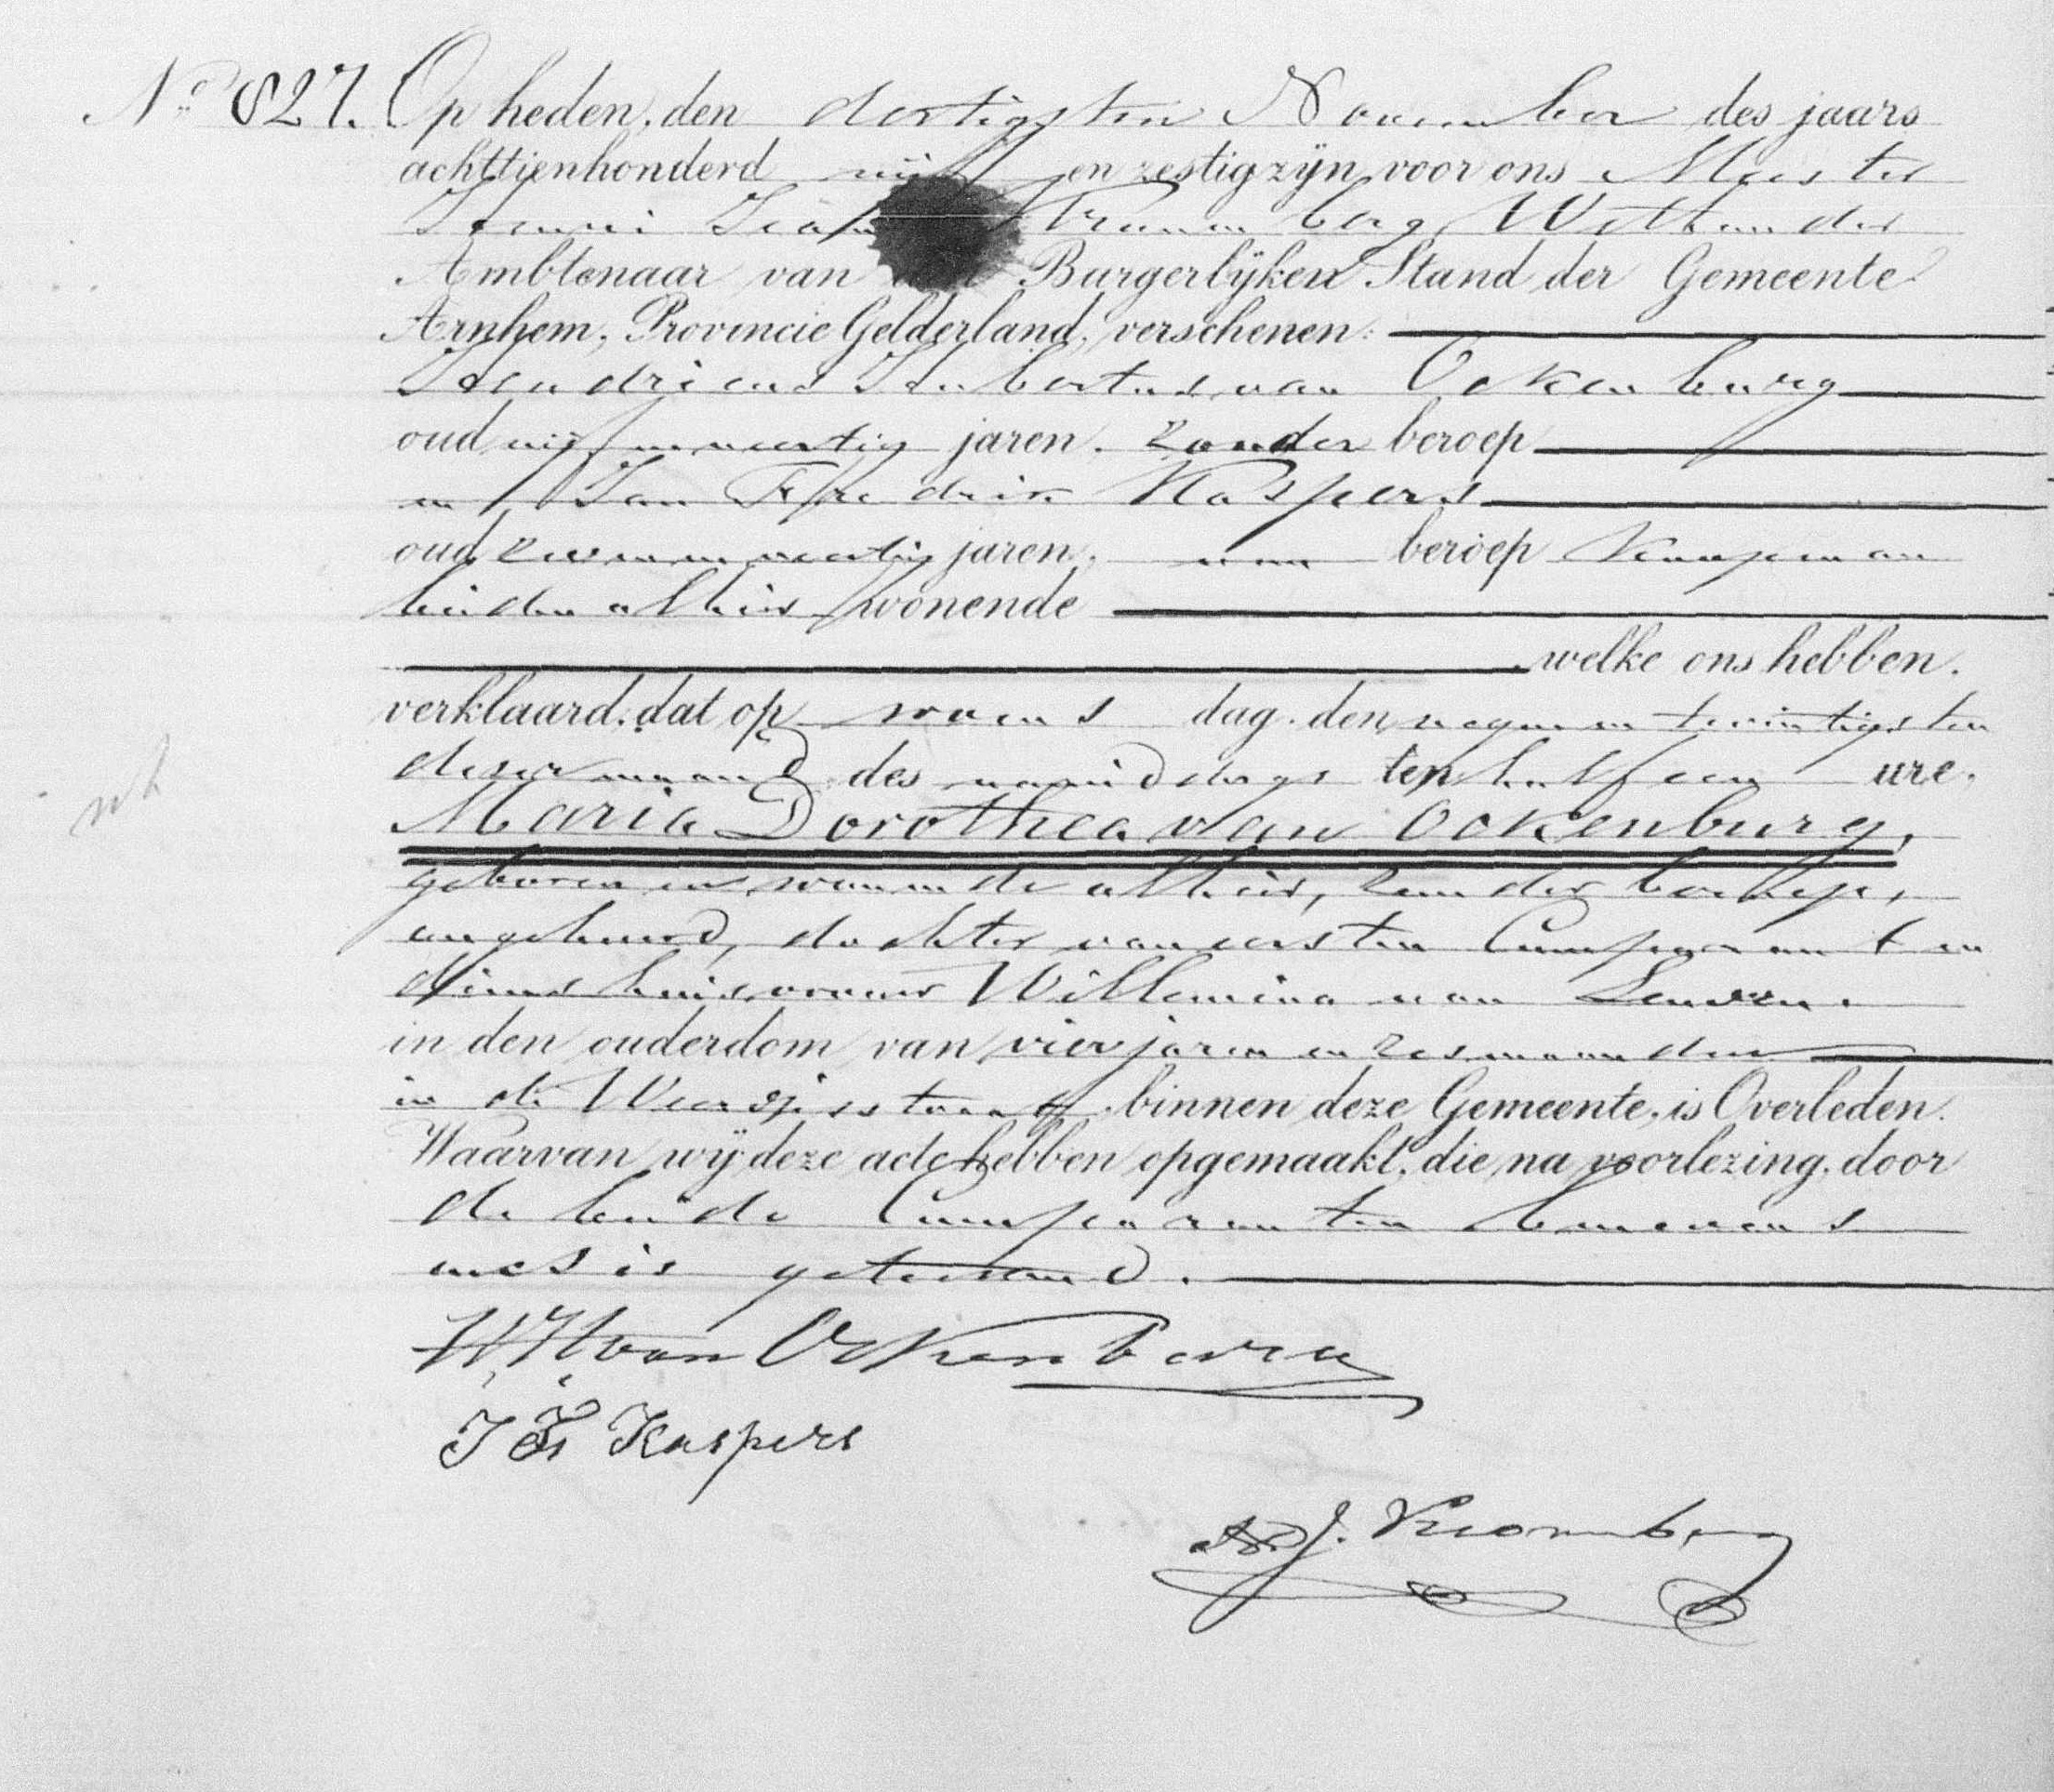 No 827. Op heden, den dertigsten November des jaars
achttienhonderd vijf en zestig zijn voor ons Meester
Kromberg, Wethouder
Ambtenaar van den Burgerlijken Stand der Gemeente
Arnhem, Provincie Gelderland, verschenen:
Hendricus Hubertus van Ockenburg
oud vijfenveertig jaren, zonder beroep
en Jan Fredrik Kaspers
oud zevenenveertig jaren, van beroep Koopman
beiden alhier wonende
welke ons hebben
verklaard, dat op woens dag den negenentwintigsten
dezer maand des namiddags ten half een ure,
Maria Dorothea van Ockenburg,
geboren en wonende alhier, zonder beroep,
ongehuwd, dochter van eersten Comparant en
diens huisvrouw Willemina van
in den ouderdom van vier jaren en zes maanden
in de binnen deze Gemeente, is Overleden.
Waarvan wij deze acte hebben opgemaakt, die, na voorlezing, door
de beide Comparanten benevens
ons is geteekend.
HH van Ockenburg
J F Kaspers
J. Kromberg